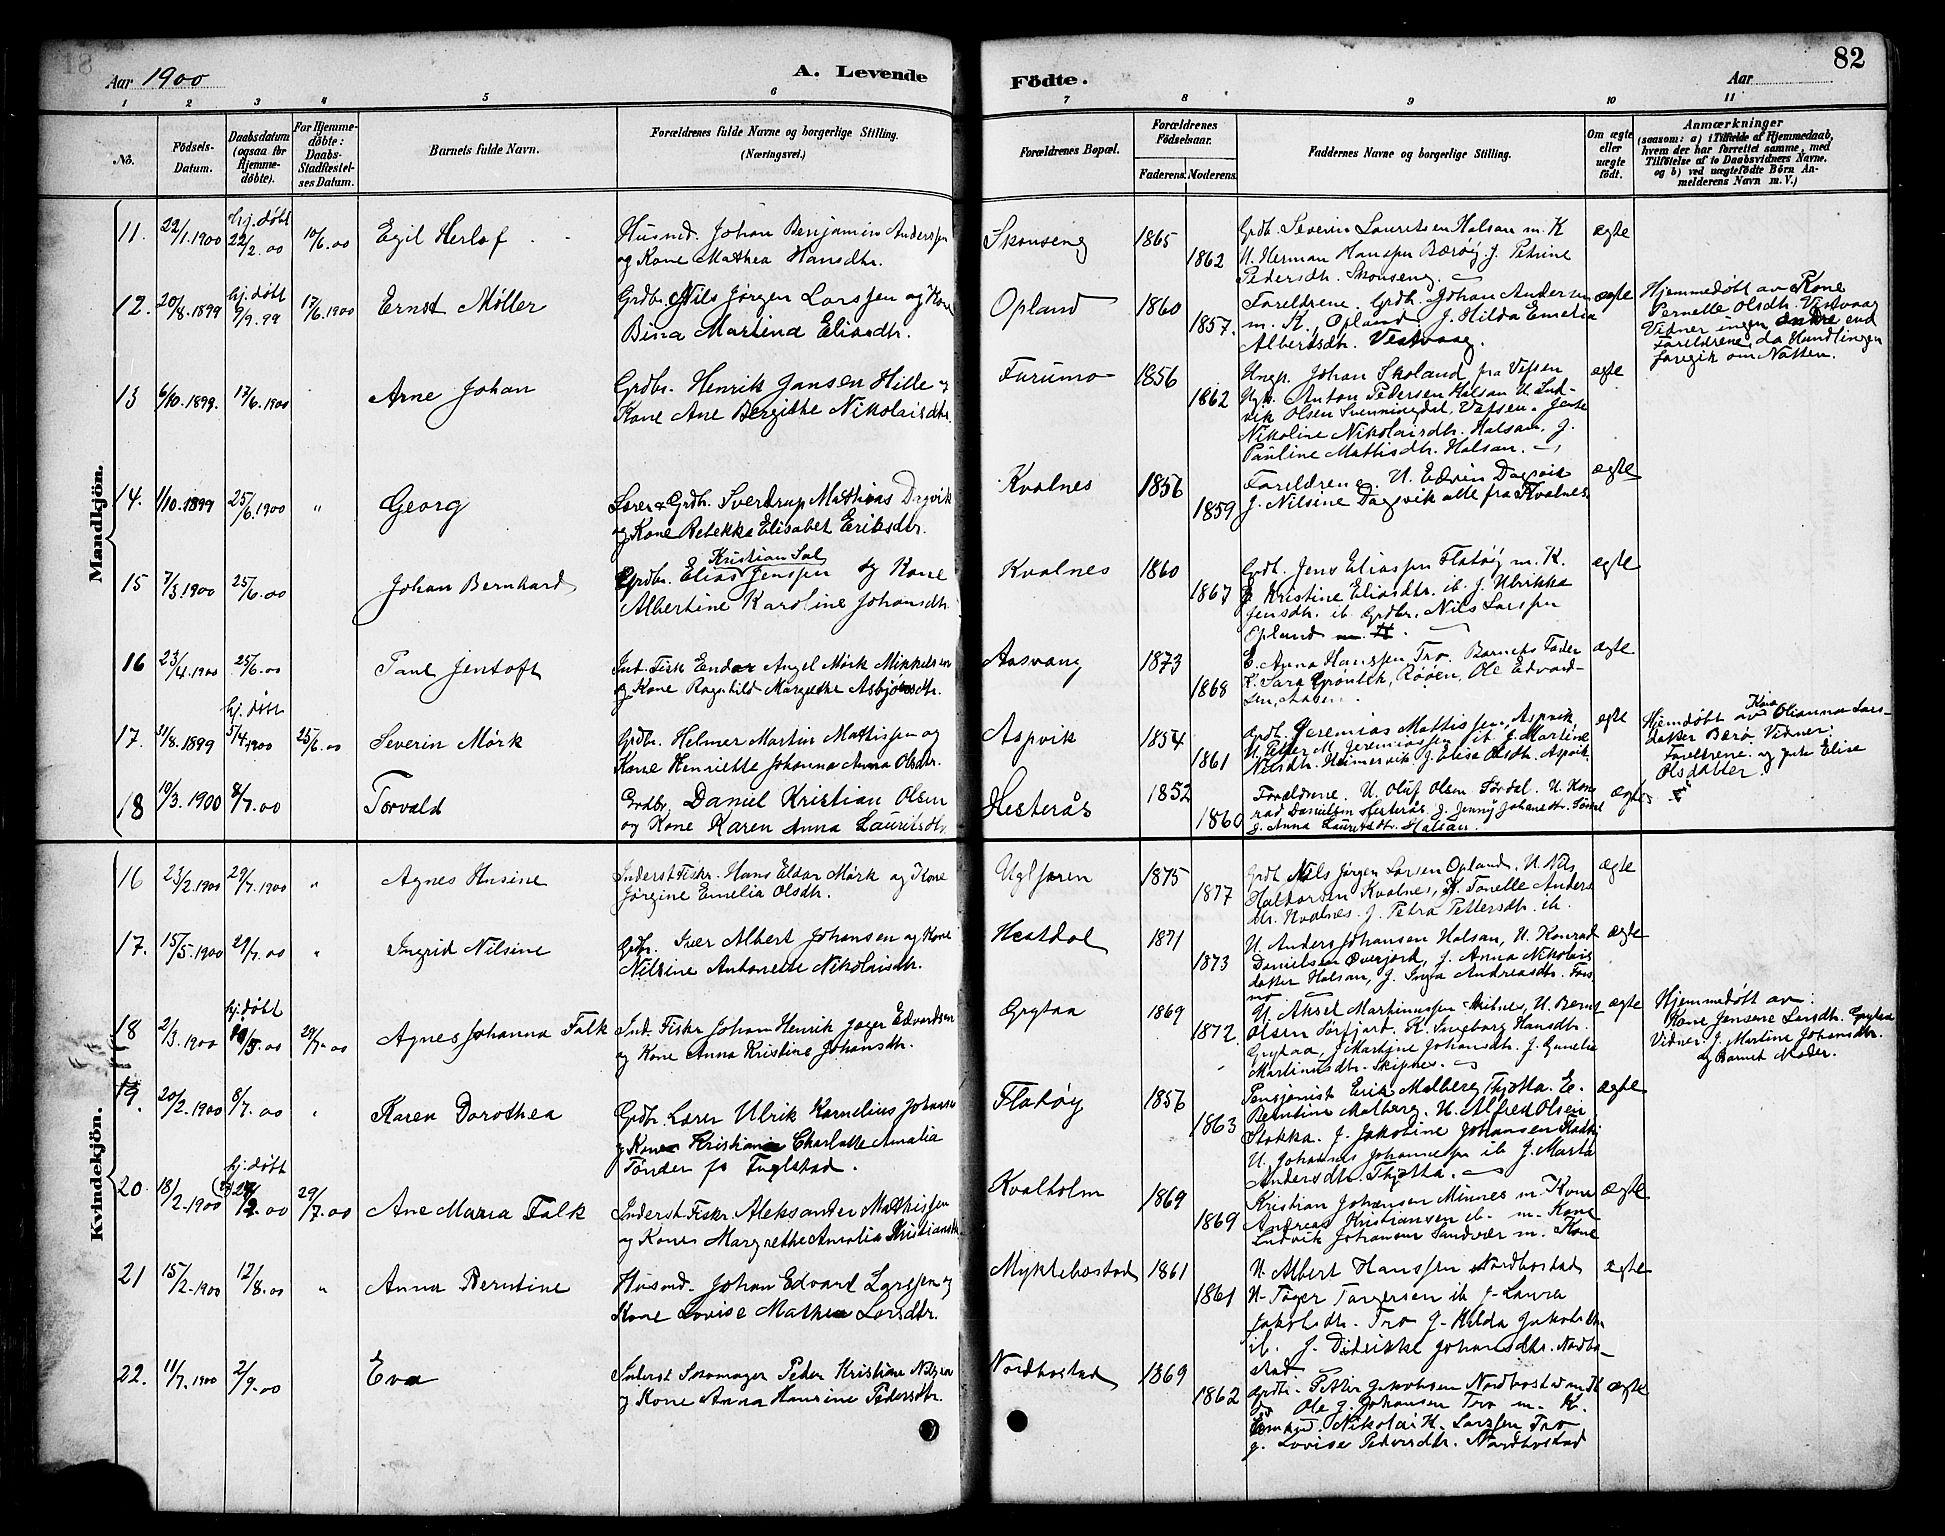 18
Aar 1900
A. Levende
1 2 3 4 5 6
Nö.
Födsels-Datum.
Daabsdatum (ogsaa for Hjemme-döbte).
For Hjemme-döbte: Daabs-Stadfæstel-ses Datum.
Barnets fulde Navn.
Forældrenes fulde Navne og borgerlige Stilling.
(Næringsvei.)
Mandkjön.
11. 22/1.1900 hj. døbt 22/2.00 10/6.00 Egil Herlof
Husmd. Johan Benjamin Anderssen
og Kone Mathea Hansdtr.
12. 20/8.1899 hj. døbt 9/9.99 17/6.1900 Ernst Møller
Grdbr. Nils Jørgen Larssen og Kone
Bina Martina Eliasdtr.
13 6/10.1899. 17/6.1900 Arne Johan
Grdbr. Henrik Jansen Hille og
Kone Ane Bergithe Nikolaisdtr.
14. 11/10.1899 25/6.1900 " Georg
Lærer & Grdbr. Sverdrup Mathias Dagvik
og Kone Rebekka Elisabet Eriksdtr.
15 7/3.1900 25/6.00 Johan Bernhard
Kristian Sal
Grdbr. Elias Jenssen og Kone
Albertine Karoline Johansdtr.
16 23/4.1900 25/6.00 Paul Jentoft
Ind. Fisk Endor Angel Mørk Mikkelsen
og Kone Ragnhild Margrethe Asbjørnsdtr.
17. 31/8.1899 hj. døbt 5/4.1900 25/6.00 Severin Mørk
Grdbr. Helmer Martin Mattissen og
Kone Henriette Johanna Anna Olsdtr.
18 10/3.1900 8/7.00 Torvald
Grdbr. Daniel Kristian Olsen
og Kone Karen Anna Lauritsdtr.
Kvindekjön.
16 23/2.1900 29/7.1900 " Agnes Husine
Inderst Fiskr. Hans Eldar Mørk og Kone
Jørgine Emelia Olsdtr.
17. 15/5.1900 29/7.00 " Ingrid Nilsine
Grdbr. Iver Albert Johansen og Kone
Nilsine Antonette Nikolaisdtr.
18 2/3.1900 hj. døbt 10/5.00 29/7.00 Agnes Johanna Falk
Ind. Fiskr Johan Henrik Jager Edvardsen
og Kone Anna Kristine Johansdtr.
19. 20/2.1900 8/7.00 " Karen Dorothea
Grdbr. Lærer Ulrik Kornelius Johansen
og Kone Kristiana Charlotte Amalia
Tønder fr Fuglstad.
20. 18/2.1900 hj. døbt 24/2.00 29/7.00 Ane Maria Falk
Inderst Fiskr Aleksander Mathissen
og Kone Margrethe Amalia Kristiansdtr
21 15/2.1900 12/8.00 " Anna Berntine
Husmd. Johan Edvard Larssen og
Kone Lovise Mathea Larsdtr.
22. 11/7.1900 2/9.00 Eva
Inderst Skomager Peder Kristian Nilssen
og Kone Anna Hansine Pedersdtr.
Födte.
Aar
82
7 8 9 10 11
Forældrenes Bopæl.
Forældrenes Födselsaar.
Faderens. Moderens.
Faddernes Navne og borgerlige Stilling.
Om ægte eller uægte födt.
Anmærkninger
(saasom: a) i Tilfælde af Hjemmedaab,
hvem der har forrettet samme, med
Tilföielse af to Daabsvidners Navne.
og b) ved uægtefödte Börn An-
melderens Navn m. V.)
Skonseng 1865 1862
Grdb. Severin Lauritsen Halsan m. K
U. Herman Hanssen Bærøy. J. Petrine
Pedersdtr. Skonseng.
ægte
Opland 1860 1857.
Foreldrene. Grdb. Johan Andersen
m. K., Opland. J. Hilda Emelia
Albertsdtr. Vestvaag.
ægte
Hjemmedøbt av Kone
Pernelle Olsdtr. Vestvaag
Vidner ingen andre end
Foreldrene da Handlingen
foregik om Natten.
Furumo 1856 1862
Ungk. Johan Skoland fra Vefsen
Ugk. Anton Pedersen Halsan U. Lud-
vik Olsen Svenningdal, Vefsen. Jente
Nikoline Nikolaisdtr. Halsan. J.
Pauline Mattisdtr. Halsan.
ægte
Kvalnes 1856 1859
Foreldrene. U. Edvin Dagvik
J. Nilsine Dagvik alle fra Kvalnes
ægte
Kvalnes 1860 1867
Grdb. Jens Eliassen Flatøy m. K.
E. Kristine Eliasdtr. ib. J. Ulrikka
Jensdtr. ib. Grdbr. Nils Larssen
Opland m. K.
ægte
Aasvang 1873 1868
E. Anna Hanssen Tro. Barnets Fader
K. Sara Grønbek, Røøen, Ole Edvard-
sen, Aasen.
ægte
Aspvik 1854 1861
Grdb. Jeremias Mattissen, Aspvik,
U. Peter M. Jeremiassen ib. J. Martine
Nilsdtr. Heimersvik J. Elisa Olsdtr. Aspvik.
ægte
Hjemdøbt av Kone Olianna Lars-
datter Bærø Vidner:
Foreldrene og Jente Elise
Olsdatter.
Hesterås 1852 1860
Foreldrene. U. Oluf Olsen Førdal. U. Kon-
rad Danielsen Hesterås J. Jenny Johansdtr.
J. Anna Lauritsdtr. Halsan.
ægte
Uglsjøen 1875 1877
Grdb. Nils Jørgen Larsen Opland. U. Nils
Haldorsen Kvalnes, K. Tonelle Anders
dtr. Kvalnes. J. Petra Pettersdtr. ib.
ægte
Hestdal 1871 1873
U. Anders Johansen Halsan, U. Konrad
Danielsen Øverjord, J. Anna Nikolais
datter Halsan, J. Inga Andreasdtr. Fors
mo
ægte
Grytaa 1869 1872
U. Aksel Martinussen U. Bernt
Olsen Sørfjord. K. Ingeborg Hansdtr.
Grytaa, J. Martine Johansdtr. J. Gunelie
Martinusdtr. Skipnes.
ægte
Hjemmedøbt av:
Kone Jensene Larsdtr. Grytaa
Vidner J. Martine Johansdtr.
og Barnets Moder.
Flatøy 1856 1863
Pensjonist Erik Malberg Thjøtta. E.
Berntine Malberg. U. Alfred Olsen
Stokka. J. Jakobine Johansen
U. Johannes Johannessen ib J. Marta
Andersdtr. Thjøtta.
ægte
Kvalholm 1869 1869
Kristian Johansen Minnes m. Kone
Andreas Kristiansen ib. m. Kone
Ludvik Johansen Sandvær m. Kone
ægte
Myklebostad 1861 1861
U. Albert Hanssen Nordbostad
U. Tøger Torgersen ib J. Laura
Jakobsdtr. Tro J. Hilda Jakobsdtr
ib. J. Didrikke Johansdtr. Nordbo-
stad.
ægte
Nordbostad 1869 1862
Grdb. Petter Jakobsen Nordbostad
Ole J. Johansen Tro m. K.
Nikolai K. Larssen Tro
J. Lovise Pedersdtr. Nordbostad
ægte